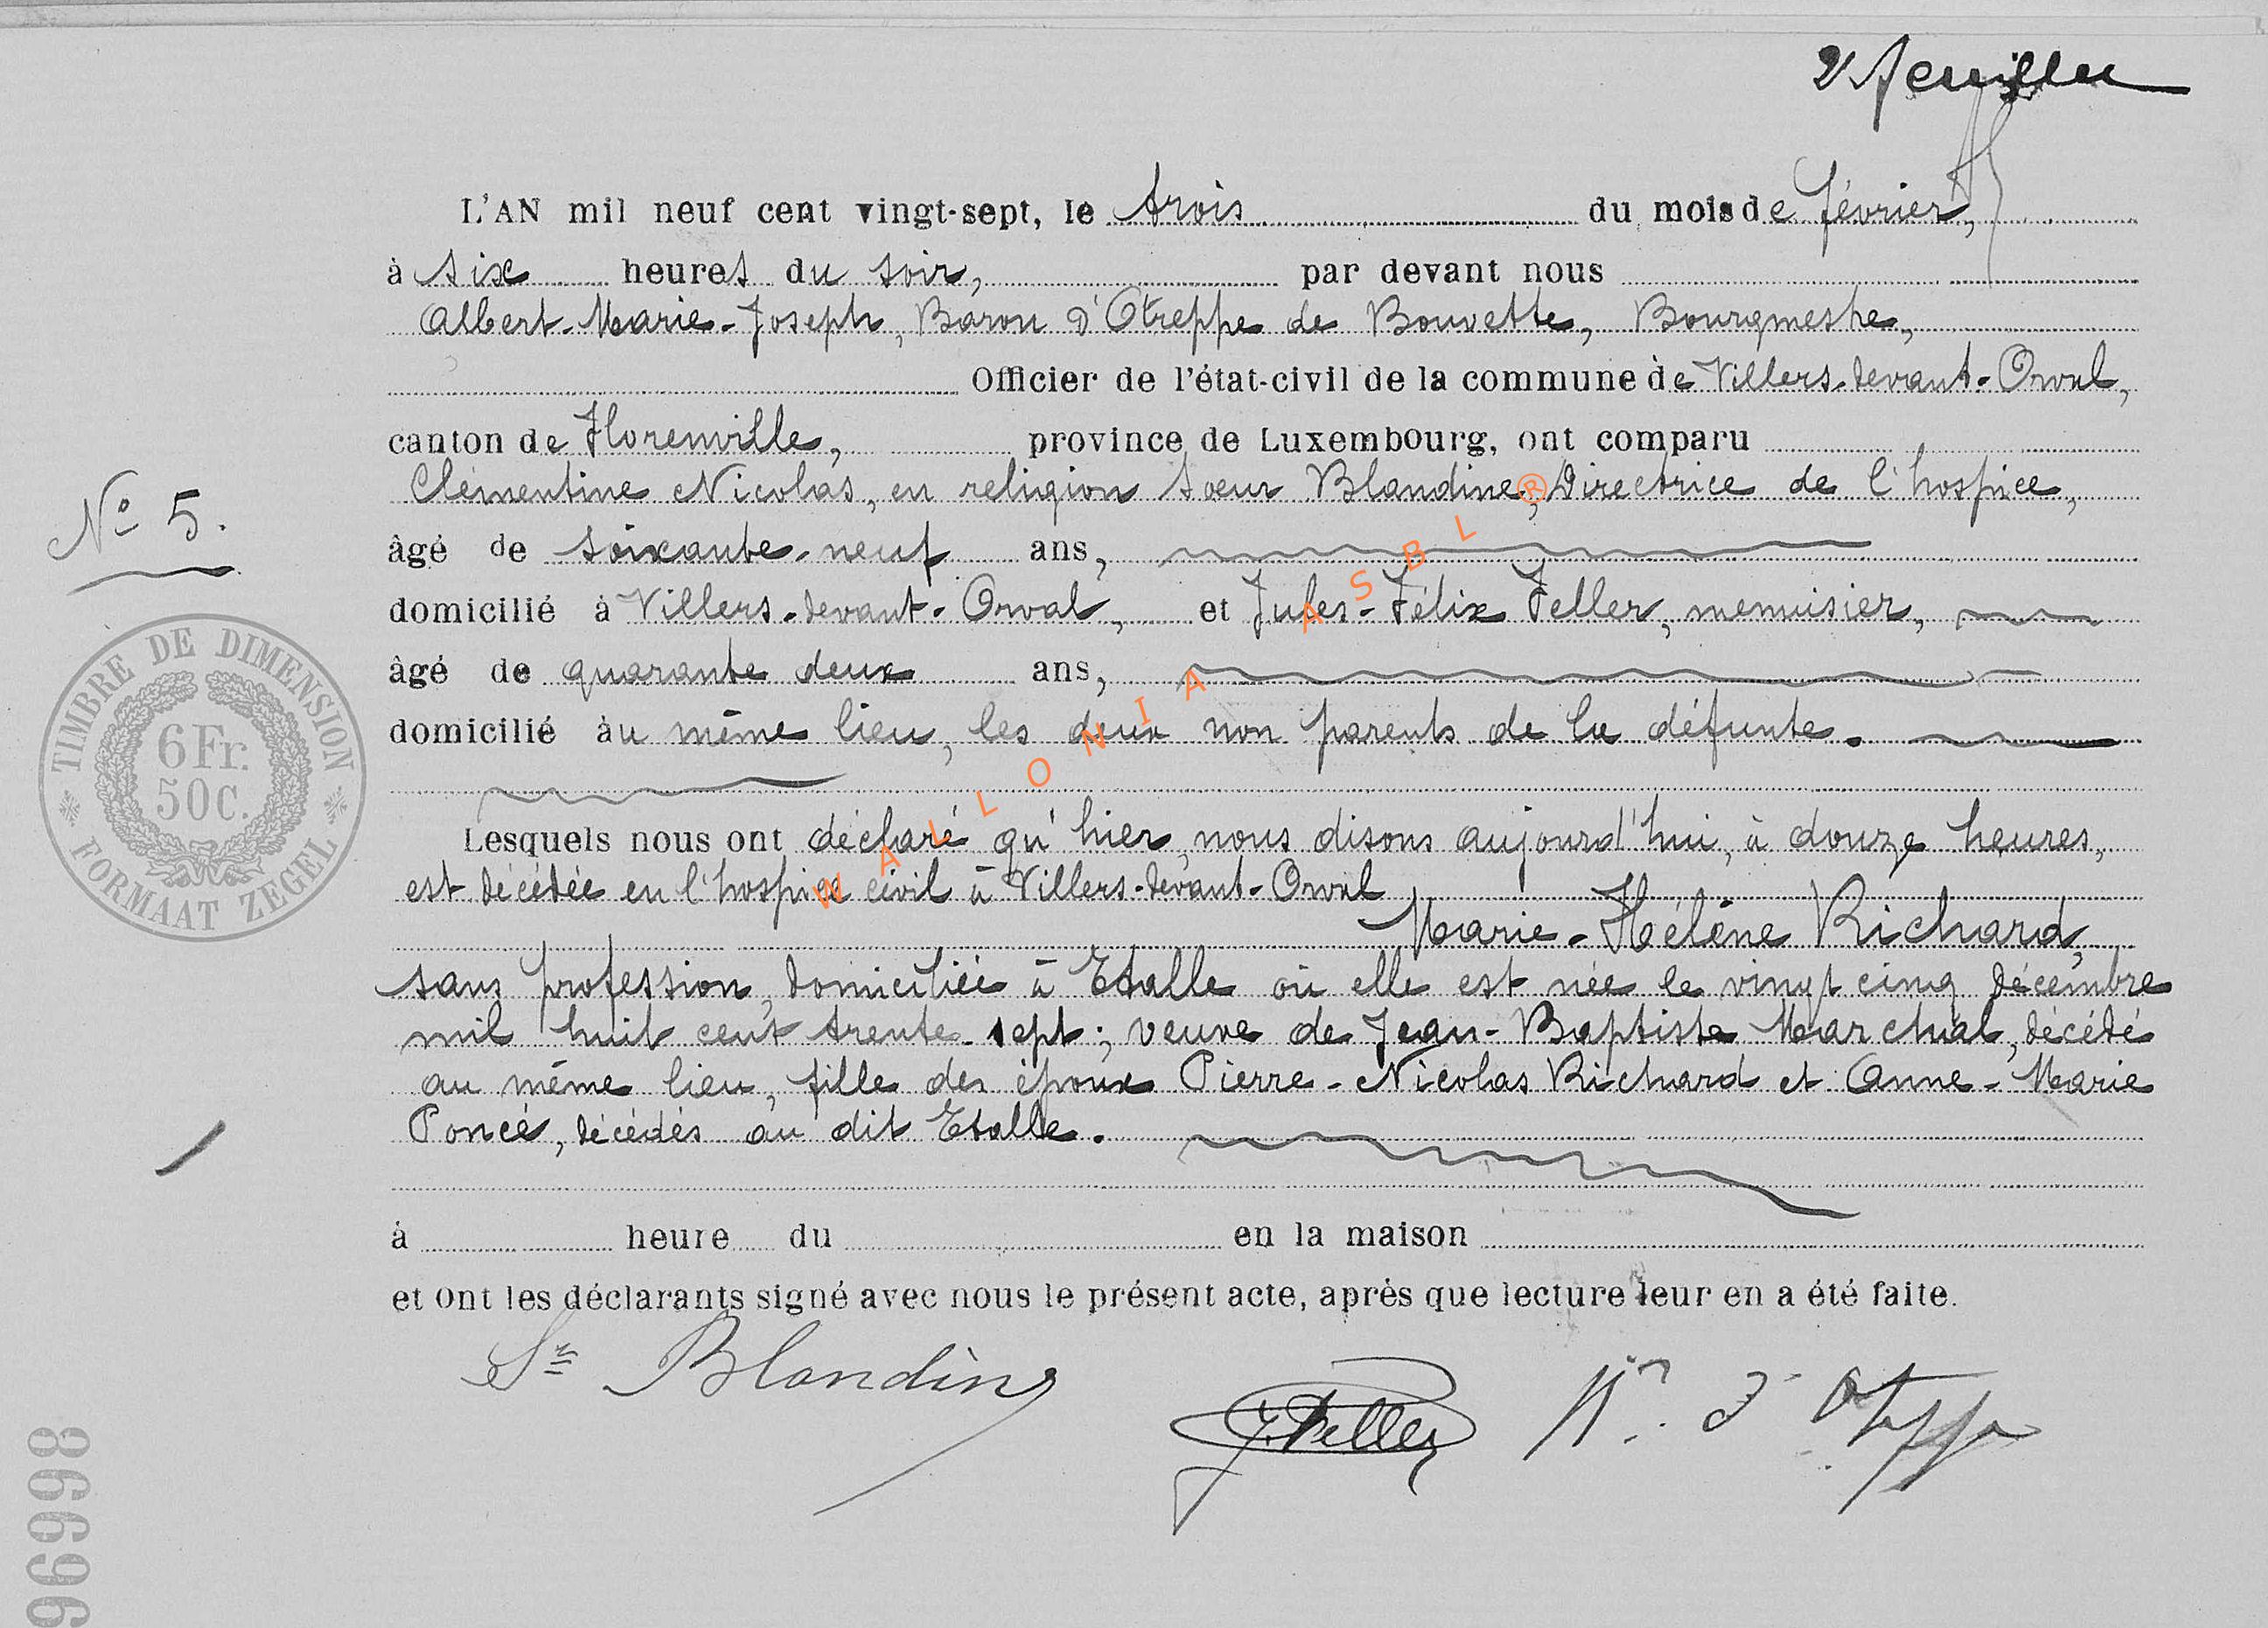 2e feuillet
L'AN mil neuf cent vingt-sept, le trois du mois de février,
à six heures du soir, par devant nous
Albert-Marie-Joseph, Baron d'Otreppe de Bouvette, Bourgmestre,
Officier de l'état-civil de la commune de Villers-devant-Orval,
canton de Florenville, province de Luxembourg, ont comparu
Clémentine Nicolas, en religion Soeur Blandine, Directrice de l'hospice,
N° 5.
âgé de soixante-neuf ans,
domicilié à Villers-devant-Orval, et Jules-Félix Feller, menuisier,
âgé de quarante deux ans,
domicilié au même lieu, les deux non parents de la défunte.
TIMBRE DE DIMENSION
6Fr.
50C.
FORMAAT ZEGEL
Lesquels nous ont déclaré qu'hier, nous disons aujourd'hui, à douze heures,
est décédée en l'hospice civil à Villers-devant-Orval
Marie-Hélène Richard,
sans profession, domiciliée à Etalle où elle est née le vingt cinq décembre
mil huit cent trente-sept; veuve de Jean-Baptiste Marchal, décédé
au même lieu, fille des époux Pierre-Nicolas Richard et Anne-Marie
Poncé, décédés au dit Etalle.
à heure du en la maison
et ont les déclarants signé avec nous le présent acte, après que lecture leur en a été faite.
Sr Blandine
J. Feller
Bn d'Otreppe
96998
WALLONIA ASBL ®